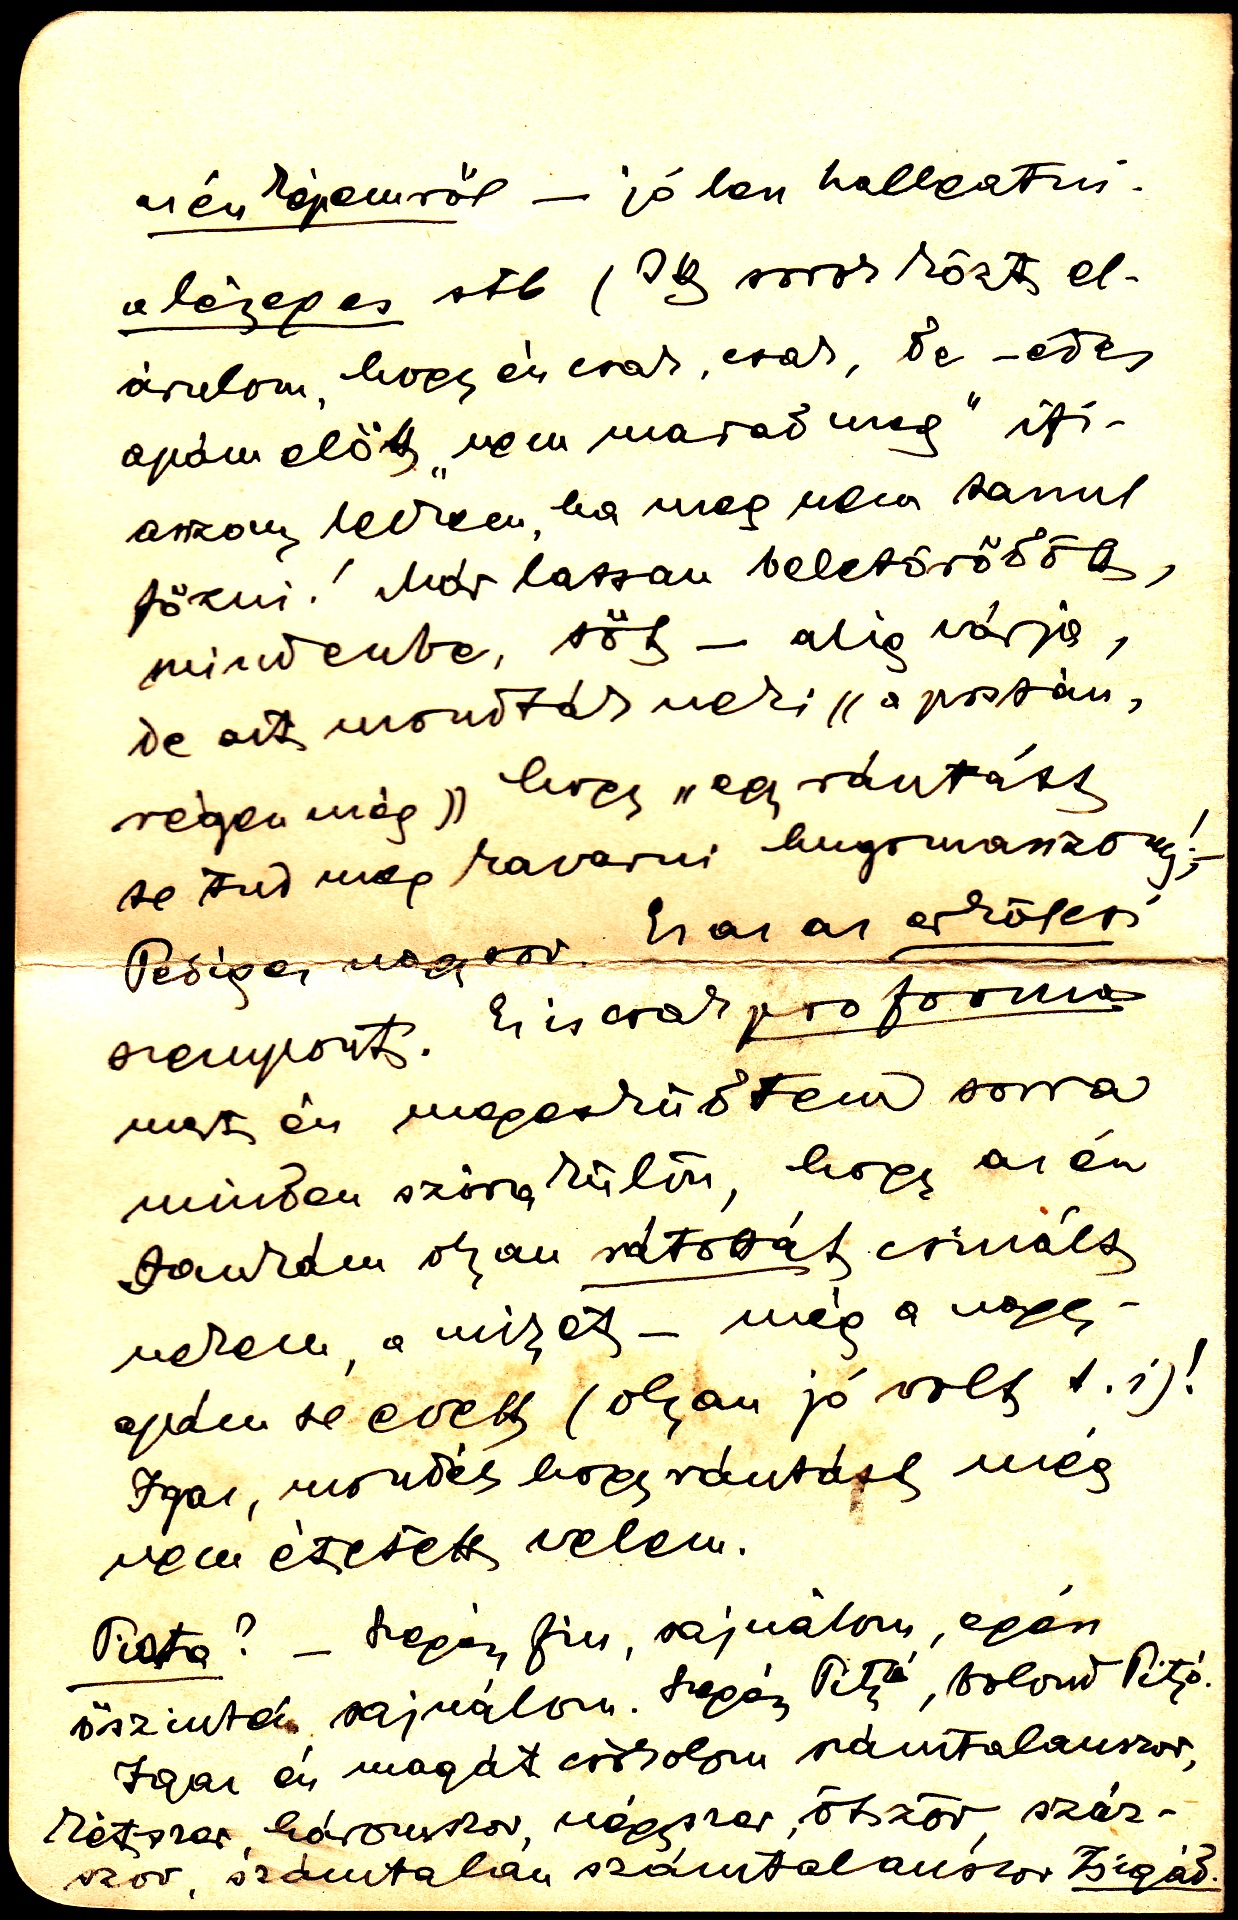 az én képemről — jó lesz hallgatni.
a lényeges stb (Igy sorok közt el-
árulom, hogy én csak, csak, de – édes
apám előtt „nem marad meg” ifi-
asszony lelkem, ha meg nem tanul
főzni! Már lassan beletörődött,
mindenbe, sőt – alig várja,
de azt mondták neki „a postán,
régen még” hogy „egy rántást
se tud meg kavarni hugomasszony!” –
Pedig ez nagy sor. Ez az az erkölcsi
szempont. Ez is csak pro forma
mert én megesküdtem sorra
minden szóra külön, hogy az én
Jankám olyan rátottát csinált
nekem, a milyet – még a nagy-
apám se evett (olyan jó volt t. i)!
Igaz, mondék hogy rántást még
nem étetett velem.
Pista? – Szegény fiu, sajnálom, egész
őszintén sajnálom. Szegény Pityó, bolond Pityó.
Igaz én magát csókolom számtalanszor,
kétszer, háromszor, négyszer, ötször, száz-
szor, számtalan számtalanszor Zsigád.